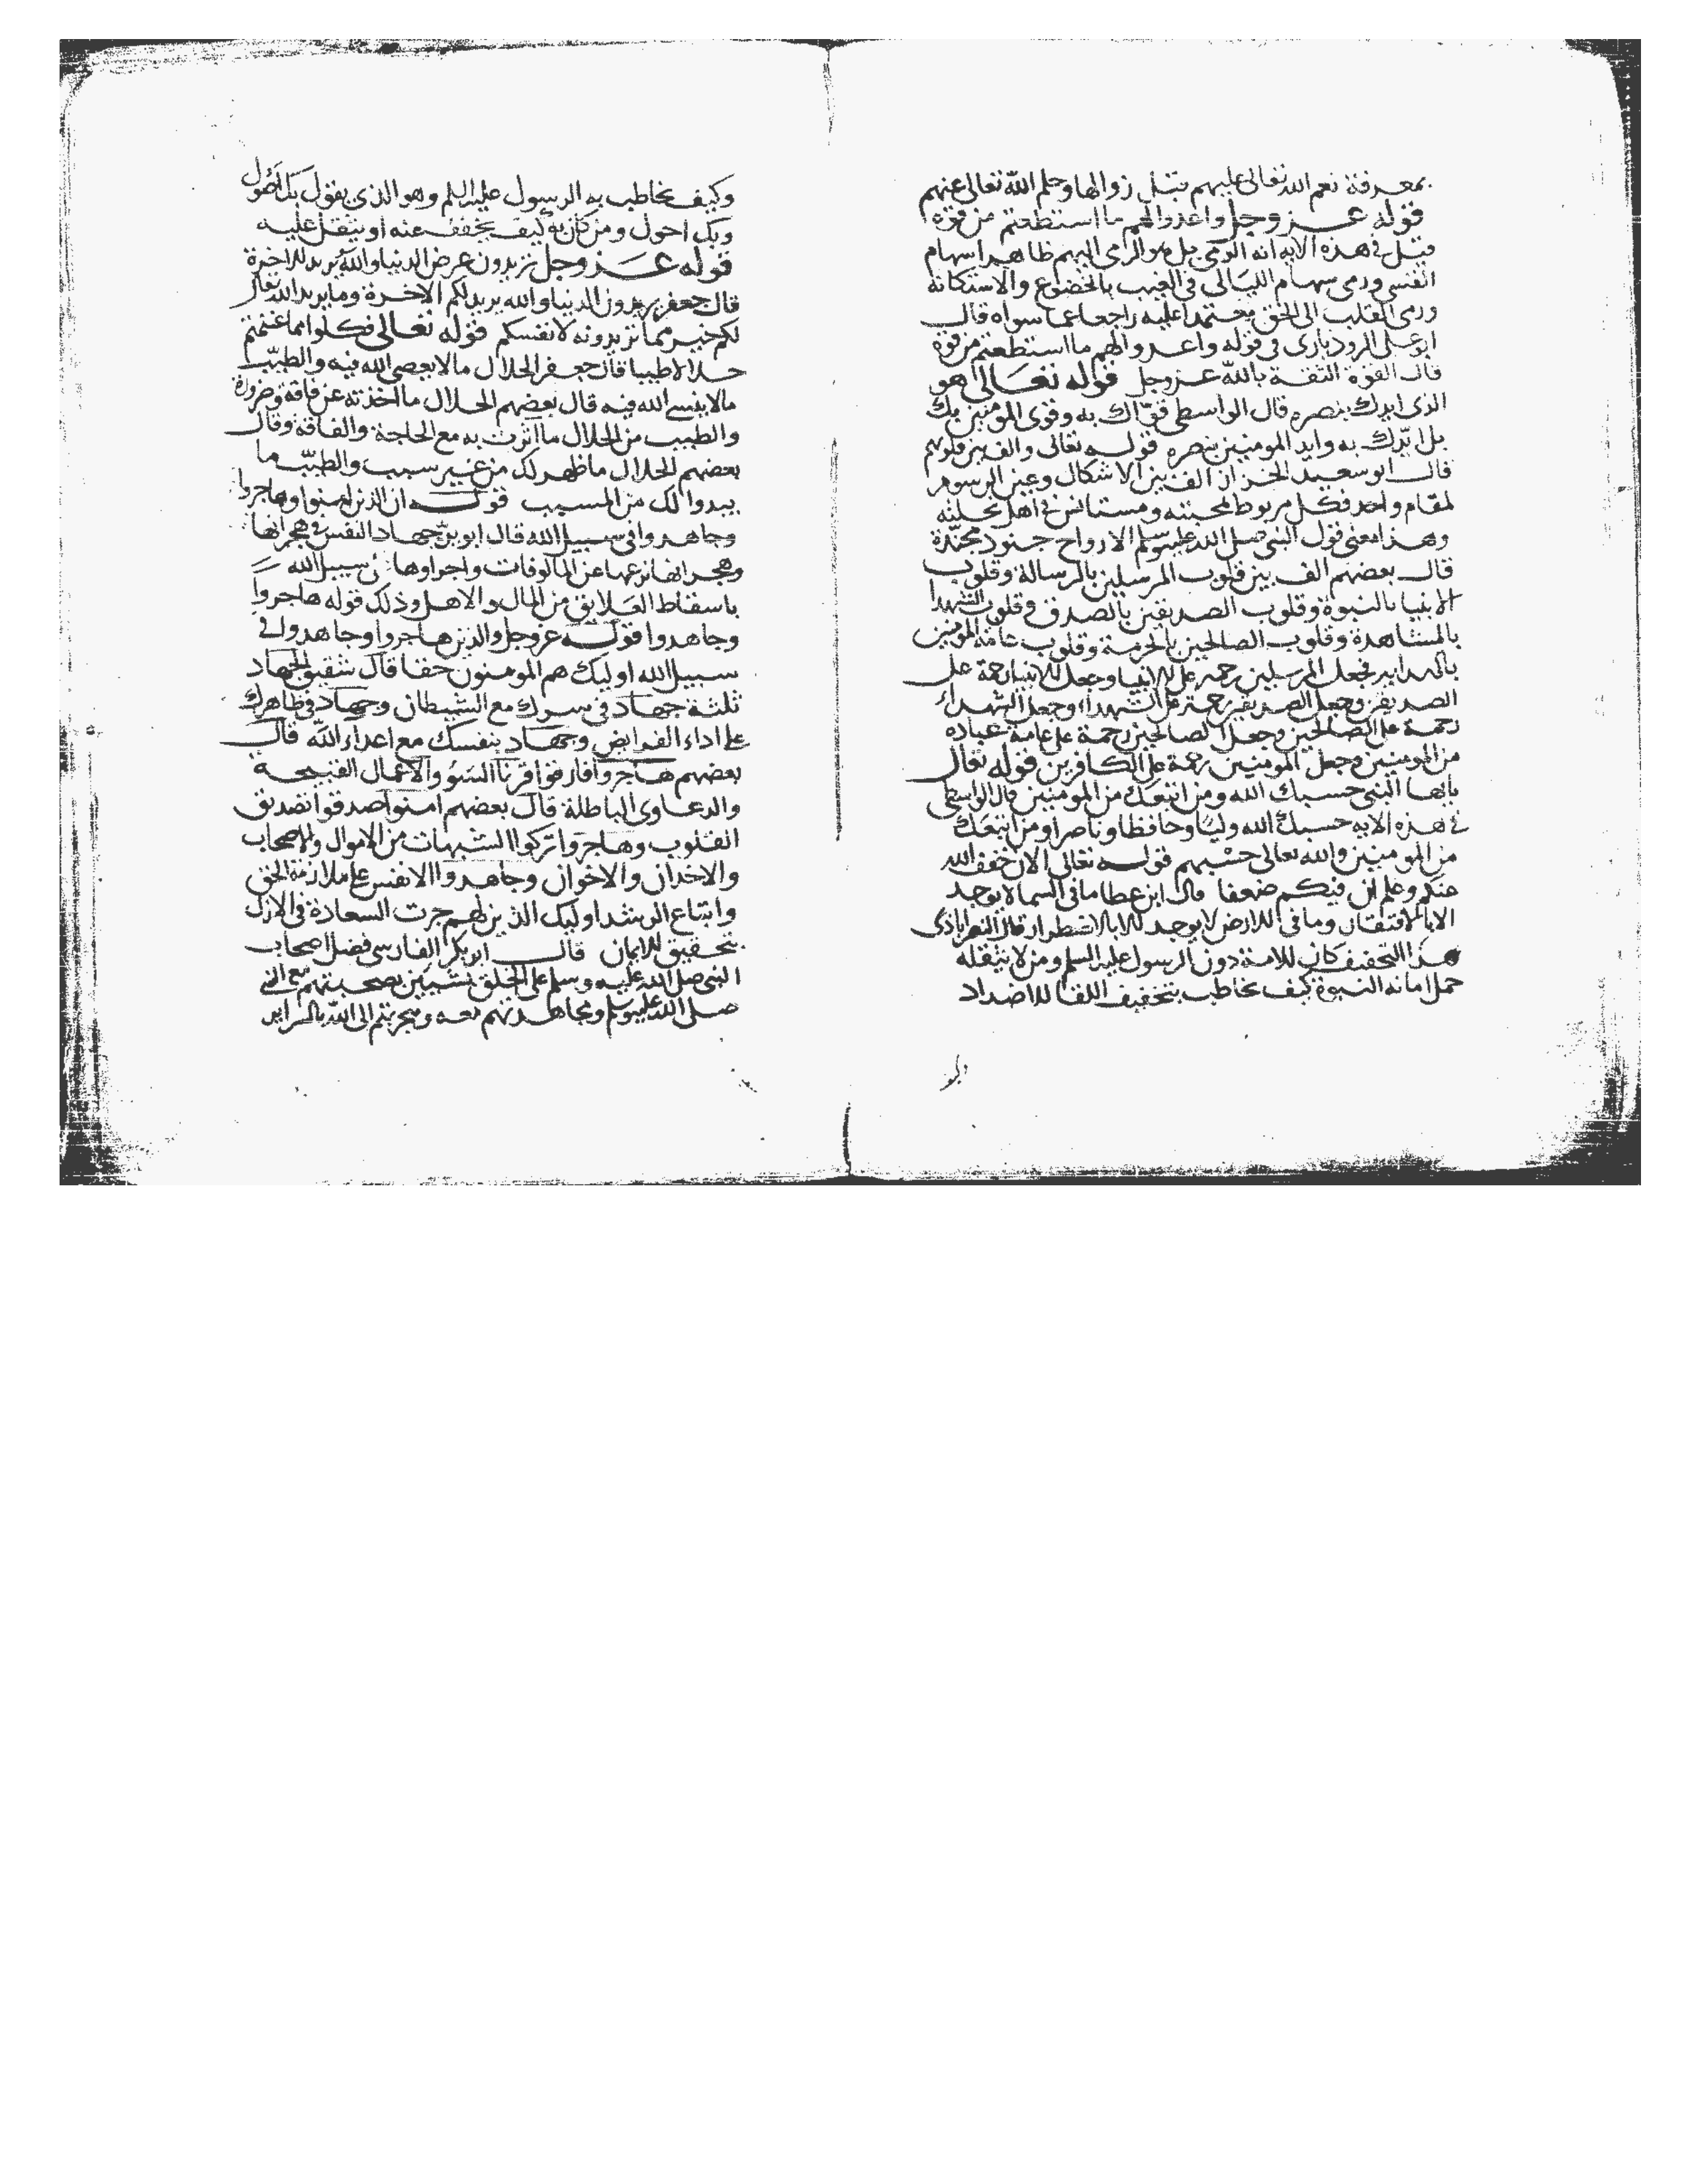 بمعرفة نعم الله تعالى عليهم قبل زوالها وحلم الله تعالى عنهم
قوله عز وجل واعدوا لهم ما استطعتم من قوة
قيل في هذه الايه انه الرمى بل هو الرمى اليهم ظاهرا سهام
القسى ورمى سهام الليالى في الغيب بالخضوع والاستكانة
ورمى القلب الى الحق معتمدا عليه راجعا عما سواه قال
ابو على الروذبارى في قوله واعدوا لهم ما استطعتم من قوة
قال القوة الثقة بالله عز وجل قوله تعالى هو
الذى ايدك بنصره قال الواسطى قوّاك به وقوى المومنين بك
بل ايّدك به وايد المومنين بنصره قوله تعالى والف بين قلوبهم
قال ابو سعيد الخزاز الف بين الاشكال وغير الرسوم
لمقام واحد فكل مربوط بمحبته ومستانس في اهل نحلته
وهذا معنى قول النبي صلى الله عليه وسلم الارواح جنود مجنّدة
قال بعضهم الف بين قلوب المرسلين بالرسالة وقلوب
الانبيا بالنبوة وقلوب الصديقين بالصدق وقلوب الشهدا
بالمشاهدة وقلوب الصالحين بالخرمة وقلوب عامة المومنين
بالهداية فجعل المرسلين رحمة على الانبيا وجعل الانبيا رحمة على
الصديقين وجعل الصديقين رحمة على الشهدا وجعل الشهداء
رحمة على الصالحين وجعل الصالحين رحمة على عامة عباده
من المومنين وجعل المومنين رحمة على الكافرين قوله تعالى
يايها النبي حسبك الله ومن اتبعك من المومنين قال الواسطى
في هذه الايه حسبك الله وليا وحافظا وناصرا ومن اتبعك
من المومنين والله تعالى حسبهم قوله تعالى الان خفف الله
عنكم وعلم ان فيكم ضعفا قال ابن عطا ما في السما لا يوجد
الا بالافتقار وما في الارض لا يوجد الا بالاضطرار قال النصراباذى
هذا التخفيف كان للامة دون الرسول عليه السلم ومن لا يثقله
حمل امانة النبوة كيف يخاطب بتخفيف اللقا للاضداد
وكيف يخاطب به الرسول عليه السلم وهو الذى يقول بك اصول
وبك احول ومن كان به كيف يخفف عنه او يثقل عليه
قوله عز وجل تريدون عرض الدنيا والله يريد الاخرة
قال جعفر يريدون الدنيا والله يريد لكم الاخرة وما يريد الله تعالى
لكم خير مما تريدونه لانفسكم قوله تعالى فكلوا مما غنمتم
حلالا طيبا قال جعفر الحلال ما لا يعصى الله فيه والطيّب
ما لا ينسى الله فيه قال بعضهم الحلال ما اخذته عن فاقة وضرورة
والطيب من الحلال ما اثرت به مع الحاجة والفاقة وقال
بعضهم الحلال ما ظهر لك من غير سبب والطيّب ما
يبدوا لك من المسبب قوله ان الذين امنوا وهاجروا
وجاهدوا في سبيل الله قال ابو بن جهاد النفس في هجرانها
وهجرانها نزعها عن المالوفات واجراوها في سبيل الله
باسقاط العلايق من المال والاهل وذلك قوله هاجروا
وجاهدوا قوله عز وجل والذين هاجروا وجاهدوا في
سبيل الله اوليك هم المومنون حقا قال شقيق الجهاد
ثلثة جهاد في سرك مع الشيطان وجهاد في ظاهرك
على اداء الفرايض وجهاد بنفسك مع اعداء الله قال
بعضهم هاجروا فارقوا قرنا السَوُ والاعمال القبيحة
والدعاوى الباطلة قال بعضهم امنوا صدقوا تصديق
القلوب وهاجروا تركوا الشبهات من الاموال والاصحاب
والاخدان والاخوان وجاهدوا الانفس على ملازمة الحق
واتباع الرشد اوليك الذين لهم جرت السعادة في الازل
بتحقيق الايمان قال ابو بكر الفارسي فضل اصحاب
النبي صلى الله عليه وسلم على الخلق بشييين بصحبتهم مع النبي
صلى الله عليه وسلم ومجاهدتهم معه وهجرتهم الى الله بالسراير